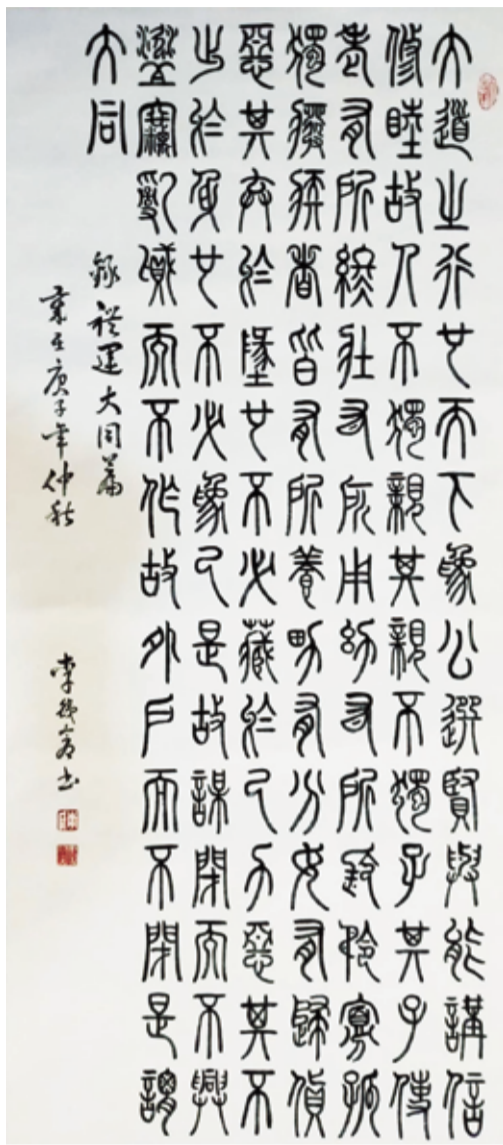 大道之行也天下為公選賢與能講信
修睦故人不獨親其親不獨子其子使
老有所終壯有所用幼有所長矜寡孤
獨廢疾者皆有所養男有分女有歸貨
惡其棄於地也不必藏於己力惡其不
出於身也不必為己是故謀閉而不興
盜竊亂賊而不作故外戶而不閉是謂
大同
錄禮運大同篇
歲在庚子年仲秋 李書